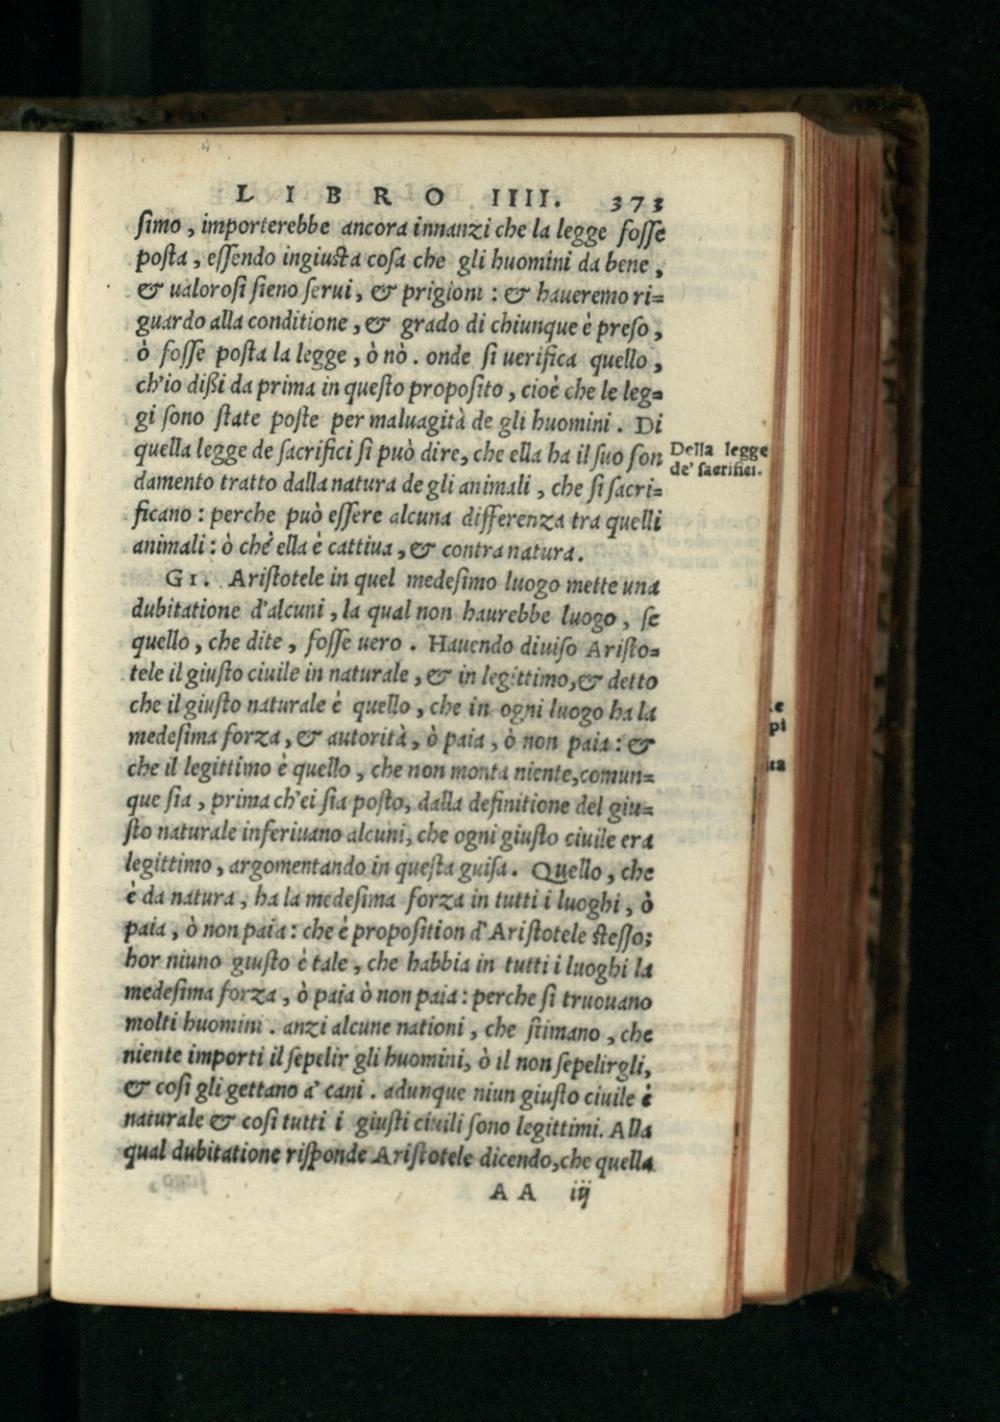 LIBRO IIII. 373
ſimo, importerebbe ancora innanzi che la legge foſſe
poſta, eſſendo ingiuſta coſa che gli huomini da bene,
& ualoroſi ſieno ſerui, & prigioni : & haueremo ri=
guardo alla conditione, & grado di chiunque è preſo,
ò foſſe poſta la legge, ò nò. onde ſi uerifica quello,
ch'io diſſi da prima in queſto propoſito, cioè che le leg=
gi ſono ſtate poſte per maluagità de gli huomini. Di
quella legge de ſacrifici ſi può dire, che ella ha il ſuo fon
damento tratto dalla natura de gli animali, che ſi ſacri=
ficano : perche può eſſere alcuna differenza tra quelli
animali : ò che ella è cattiua, & contra natura.
Della legge
de' ſacrifici.
GI. Ariſtotele in quel medeſimo luogo mette una
dubitatione d'alcuni, la qual non haurebbe luogo, ſe
quello, che dite, foſſe uero. Hauendo diuiſo Ariſto=
tele il giuſto ciuile in naturale, & in legittimo, & detto
che il giuſto naturale è quello, che in ogni luogo ha la
medeſima forza, & autorità, ò paia, ò non paia : &
che il legittimo è quello, che non monta niente, comun=
que ſia, prima ch'ei ſia poſto, dalla definitione del giu=
ſto naturale inferiuano alcuni, che ogni giuſto ciuile era
legittimo, argomentando in queſta guiſa. Quello, che
è da natura, ha la medeſima forza in tutti i luoghi, ò
paia, ò non paia : che è propoſition d'Ariſtotele ſteſſo;
hor niuno giuſto è tale, che habbia in tutti i luoghi la
medeſima forza, ò paia ò non paia : perche ſi truouano
molti huomini. anzi alcune nationi, che ſtimano, che
niente importi il ſepelir gli huomini, ò il non ſepelirgli,
& coſi gli gettano a' cani. adunque niun giuſto ciuile è
naturale & coſi tutti i giuſti ciuili ſono legittimi. Alla
qual dubitatione riſponde Ariſtotele dicendo, che quella
AA iij